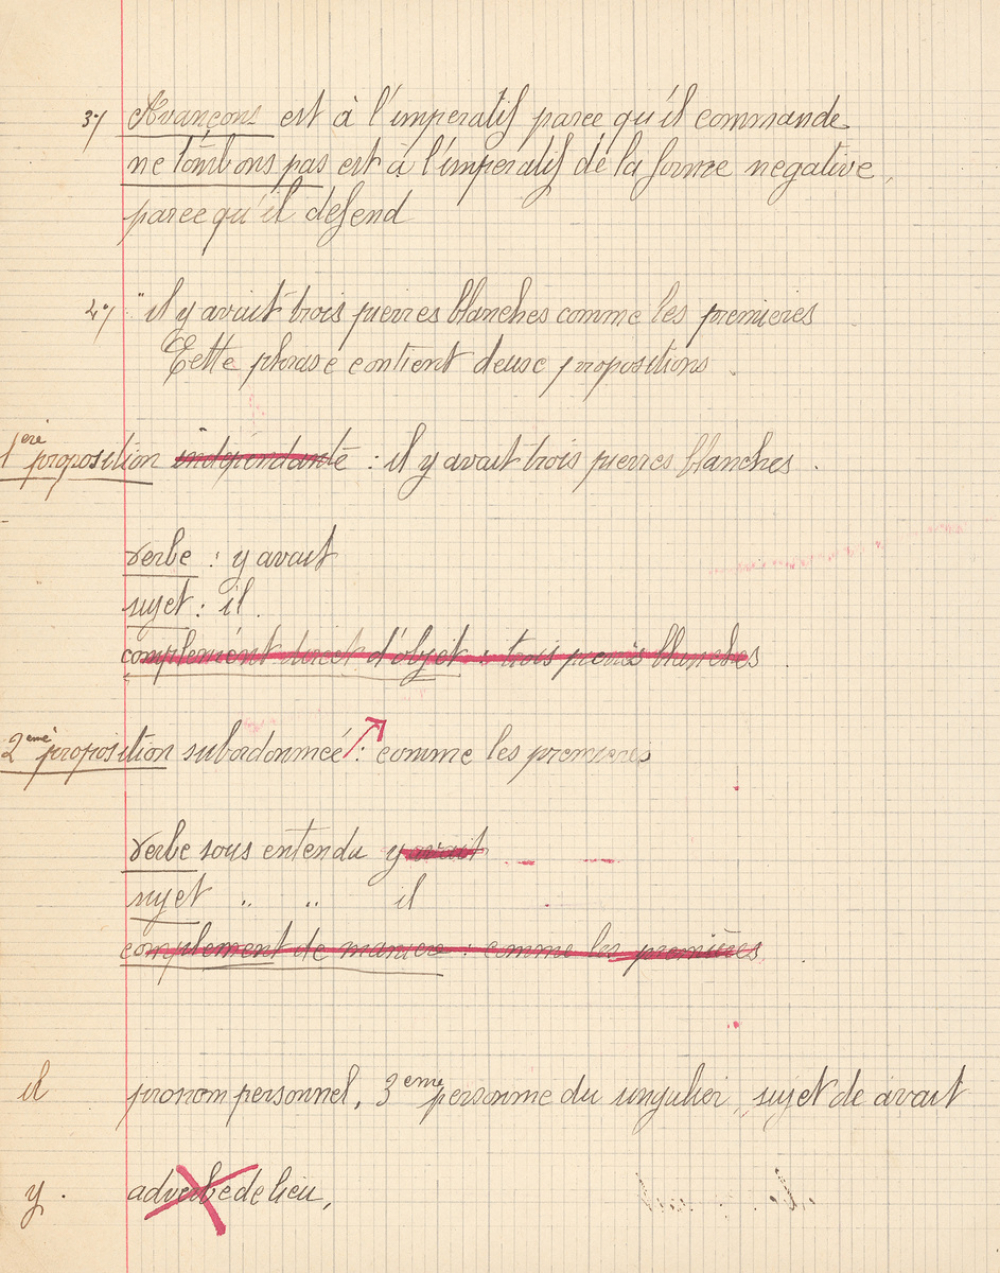 3°/ Avançons est à l'imperatif parce qu'il commande
ne tombons pas est à l'imperatif de la forme negative,
parce qu'il defend
2°/ "il y avait trois pierres blanches comme les premieres
Cette phrase contient deux propositions.
1ere proposition indépendante : il y avait trois pierres blanches.
verbe : y avait
sujet : il.
complément direct d'objet : trois pierres blanches.
2eme proposition subordonnée : comme les premieres
verbe sous entendu y avait
sujet " " il
complement de maniere : comme les premières.
il pronom personnel, 3eme personne du singulier, sujet de avait
y. adverbe de lieu,